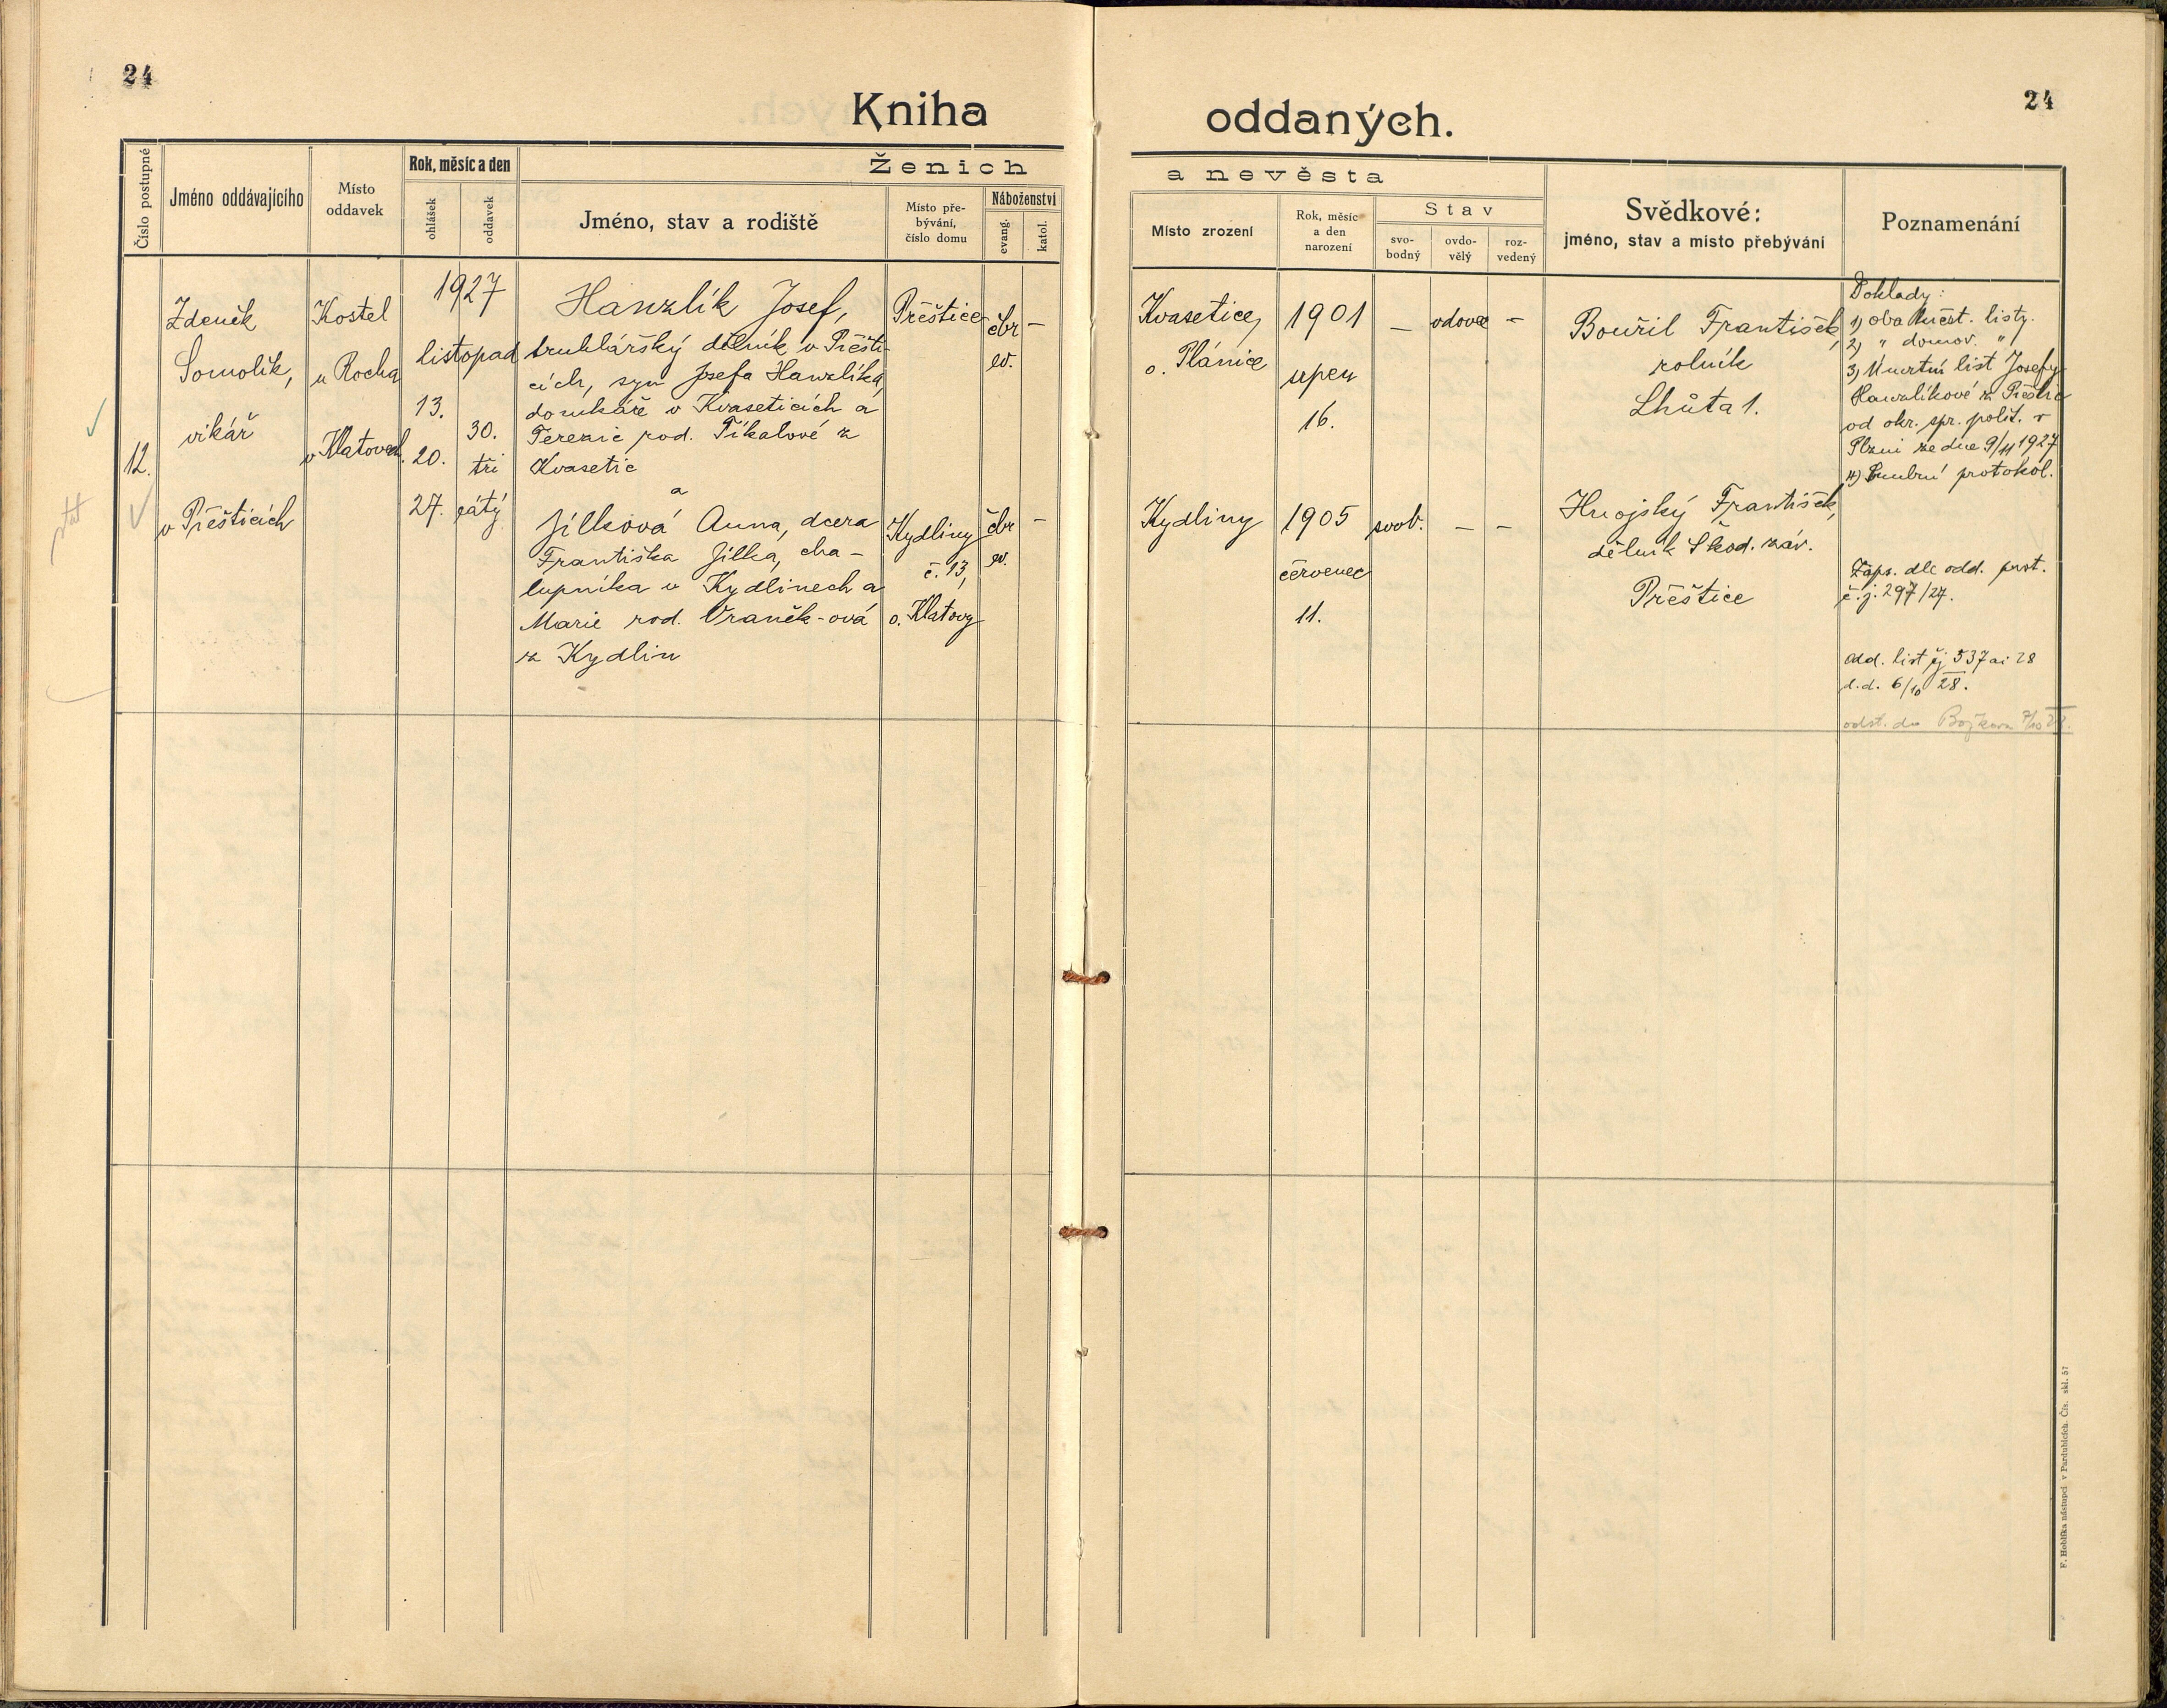 24
24
Kniha
oddaných.
Číslo postupné
Jméno oddávajícího
Místo
oddavek
Rok, měsíc a den
ohlášek
oddavek
Ženich
Jméno, stav a rodiště
Místo pře-
bývání,
číslo domu
Náboženství
evang.
katol.
a nevěsta
Místo zrození
Rok, měsíc
a den
narození
Stav
svo-
bodný
ovdo-
vělý
roz-
vedený
Svědkové:
jméno, stav a místo přebývání
Poznamenání
12.
Zdeněk
Somolík,
vikář
v Přešticích
Kostel
u Rocha
v Klatovech.
1927
listopad
13.
20.
27.
30.
tři
cátý.
Hanzlík Josef,
truhlářský dělník v Přešti-
cích, syn Josefa Hanzlíka,
domkáře v Kvaseticích a
Terezie rod. Tikalové z
Kvasetic
a
Jílková Anna, dcera
Františka Jílka, cha-
lupníka v Kydlinech a
Marie rod. Vraněk-ová
z Kydlin
Přeštice
čbr
ev.
–
Kydliny
č. 13,
o. Klatovy
čbr
ev.
–
Kvasetice,
o. Plánice
1901
srpen
16.
–
vdovec
–
Kydliny
1905
červenec
11.
svob.
–
–
Bouřil František,
rolník
Lhůta 1.
Hnojský František,
dělník Škod. záv.
Přeštice
Doklady:
1) oba křest. listy.
2) " domov. "
3) Úmrtní list Josefy
Hanzlíkové z Přeštic
od okr. spr. polit. v
Plzni ze dne 9/11 1927
4) Snubní protokol.
Zaps. dle odd. prot.
č. j. 297/27.
Odd. list čj 537 ai 28
d.d. 6/10 28.
odst. do
F. Hoblíka nástupci v Pardubicích. Čís. skl. 57